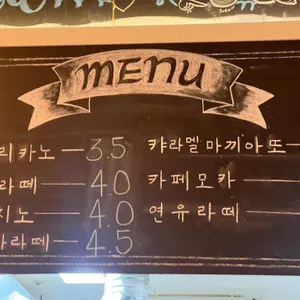 MENU
리카노 — 3.5
라떼 — 4.0
치노 — 4.0
라떼 — 4.5
캬라멜마끼아또 —
카페모카 —
연유라떼 —